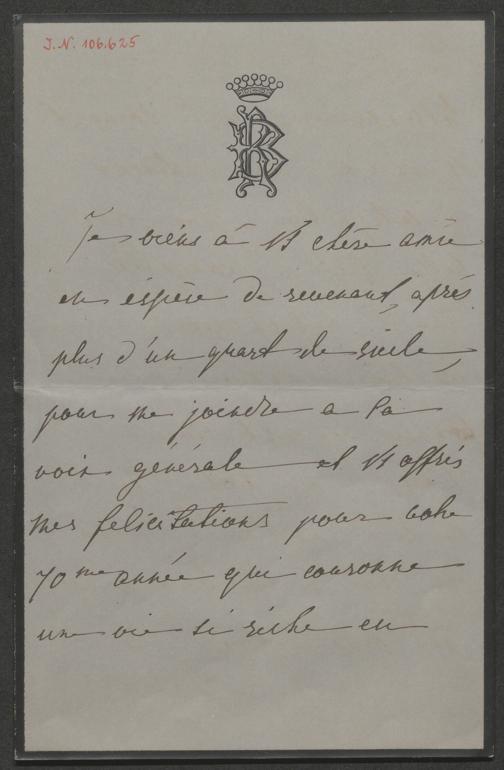 J.N. 106.625
BR
Je viens à V chère amie
en éspèce de revenant, après
plus d'un quart de siècle,
pour me joindre a la
voix générale et V offrir
mes felicitations pour votre
70me année qui couronne
une vie si riche en